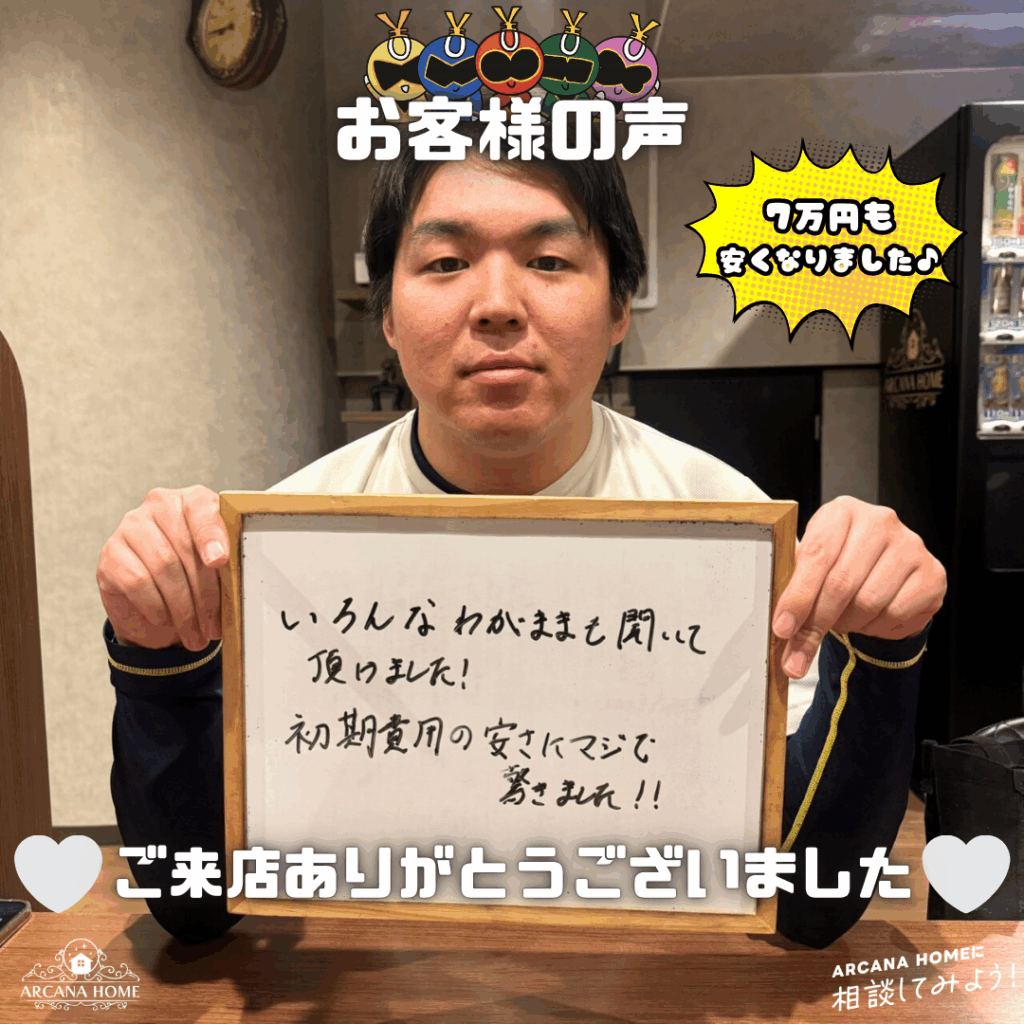 お客様の声
7万円も
安くなりました♪
ARCANA HOME
いろんなわがままも聞いて
頂けました!
初期費用の安さにマジで
驚きました!!
ご来店ありがとうございました
ARCANA HOME
ARCANA HOMEに
相談してみよう!